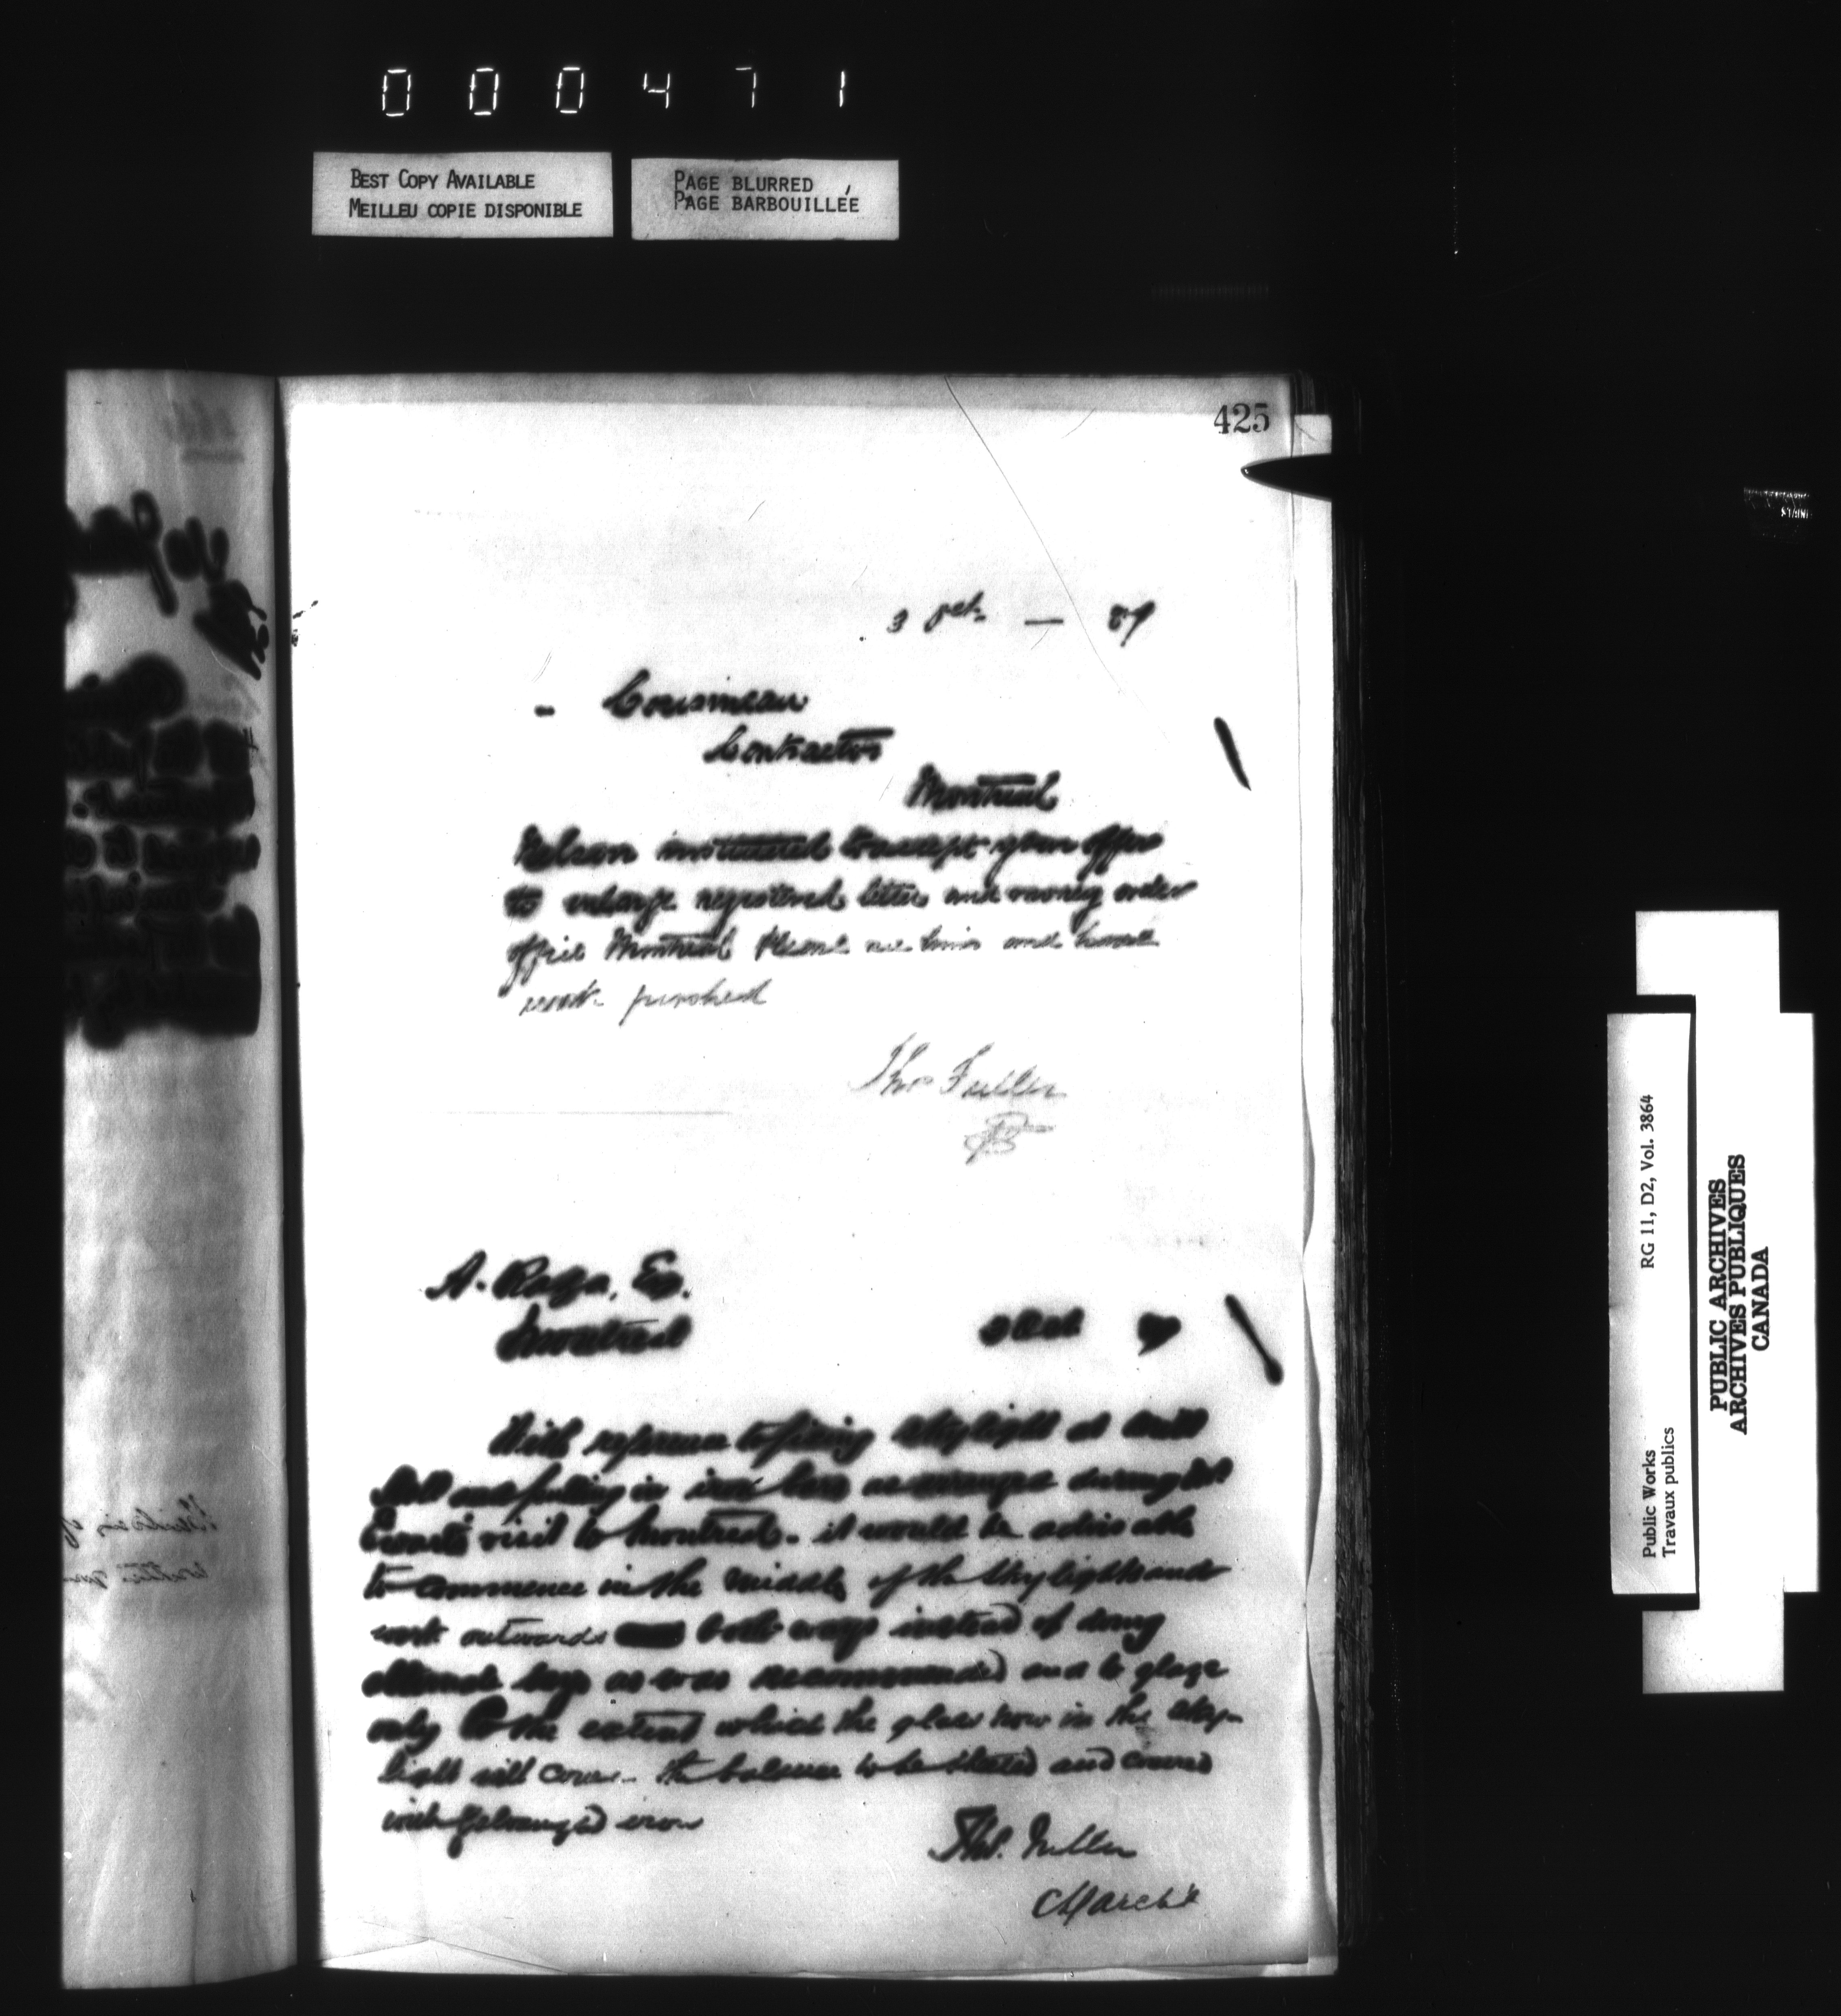 000471
BEST COPY AVAILABLE
MEILLEU COPIE DISPONIBLE
PAGE BLURRED
PAGE BARBOUILLÉE
425
3 Oct. — 89
Cousineau
Contractor
Montreal
Nelson instructed to accept your offer
to enlarge registered letter and money order
office Montreal Please see him and have
work pushed
Thos Fuller
A. Raza, Esq.
Montreal
3 Oct. 89
With reference to fixing skylight at drill
Hall and putting in iron bars as arranged during
visit to Montreal. it would be advisable
to commence in the middle of the skylights and
work outwards both ways instead of doing
alternate bays as was recommended and to glaze
only to the extent which the glass now in the sky-
light will cover. the balance to be sheeted and covered
with Galvanized iron
Thos. Fuller
Ch Archt
RG 11, D2, Vol. 3864
Public Works
Travaux publics
PUBLIC ARCHIVES
ARCHIVES PUBLIQUES
CANADA